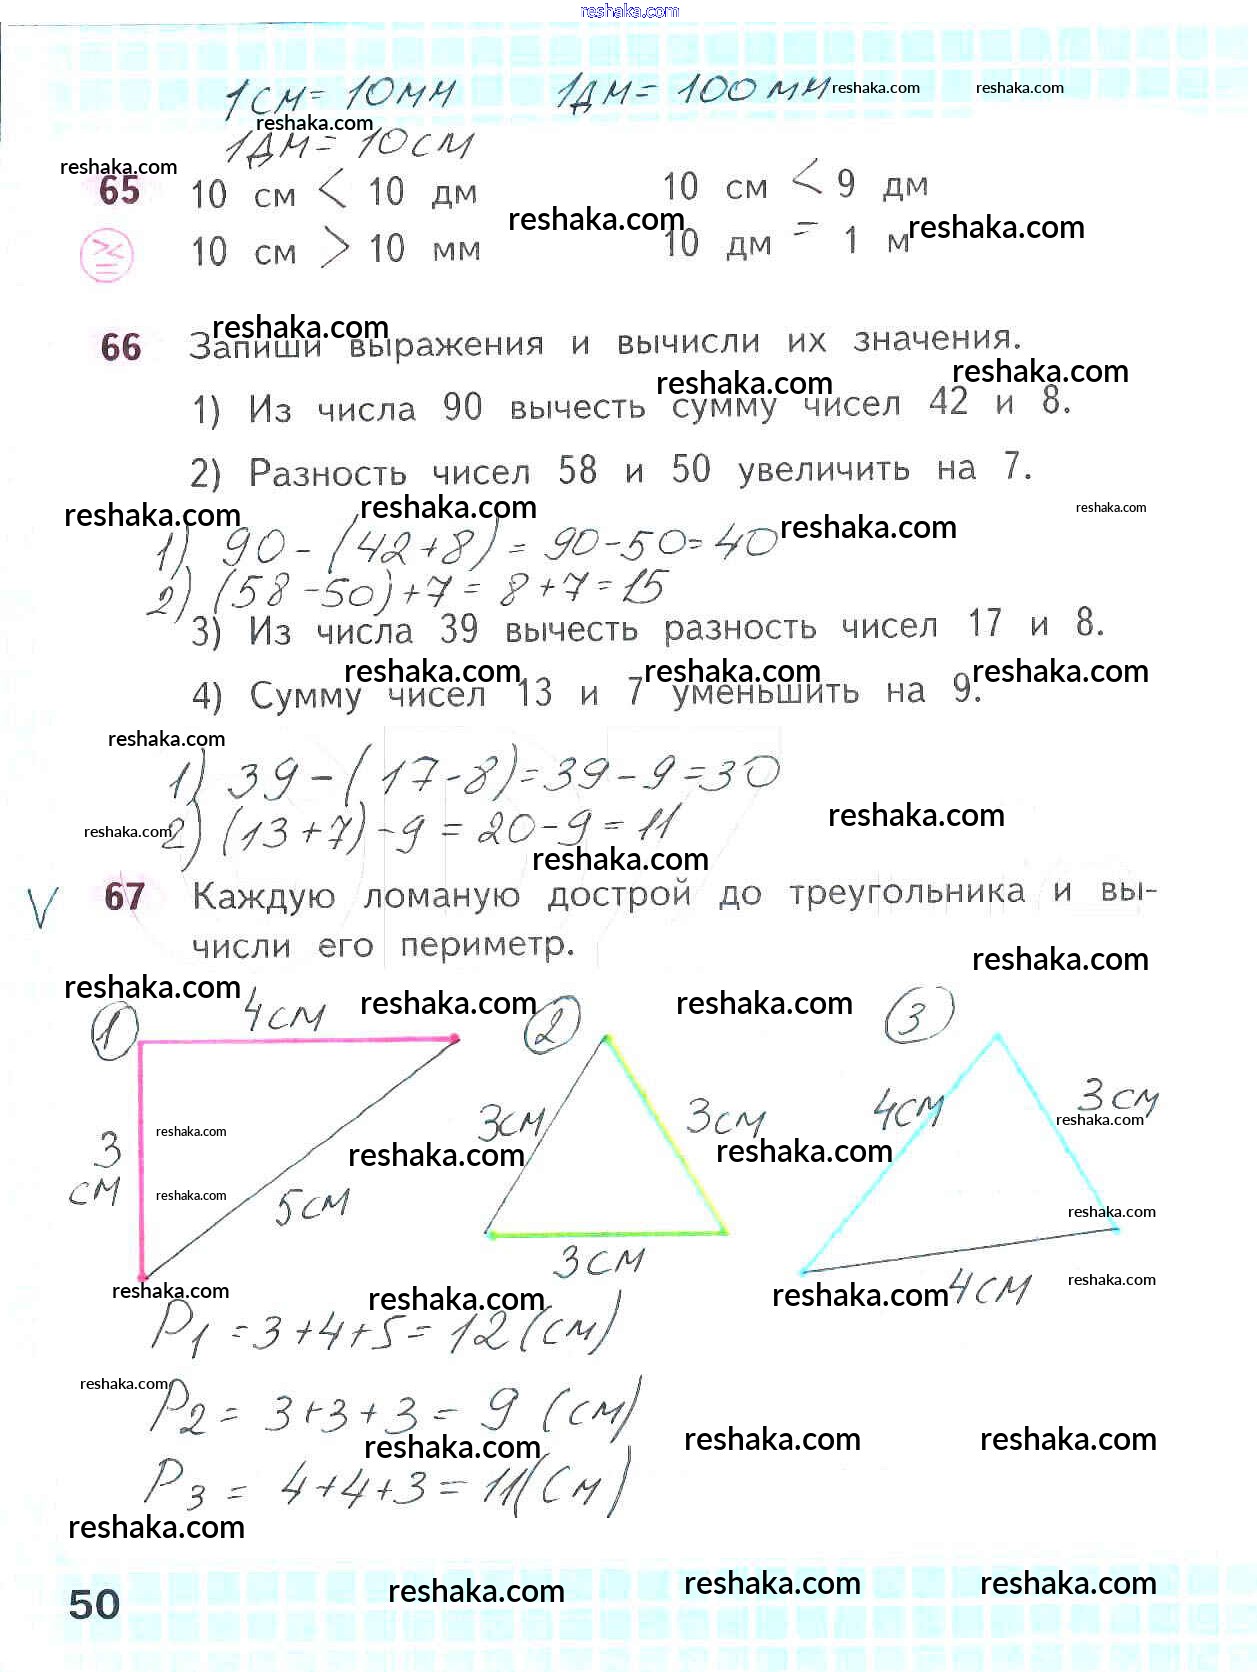 reshaka.com
1см = 10мм 1дм = 100мм reshaka.com reshaka.com
reshaka.com
1дм = 10см
reshaka.com
65 10 см < 10 дм 10 см < 9 дм
reshaka.com reshaka.com
10 см > 10 мм 10 дм = 1 м
66 Запиши выражения и вычисли их значения.
reshaka.com
reshaka.com reshaka.com
1) Из числа 90 вычесть сумму чисел 42 и 8.
2) Разность чисел 58 и 50 увеличить на 7.
reshaka.com reshaka.com reshaka.com reshaka.com
1) 90 - (42 + 8) = 90 - 50 = 40
2) (58 - 50) + 7 = 8 + 7 = 15
3) Из числа 39 вычесть разность чисел 17 и 8.
reshaka.com reshaka.com reshaka.com
4) Сумму чисел 13 и 7 уменьшить на 9.
reshaka.com
1) 39 - (17 - 8) = 39 - 9 = 30
reshaka.com reshaka.com
2) (13 + 7) - 9 = 20 - 9 = 11
reshaka.com
V 67 Каждую ломаную дострой до треугольника и вы-
числи его периметр.
reshaka.com
reshaka.com reshaka.com reshaka.com
1 4см 2 3
3см 3см 4см 3см
reshaka.com reshaka.com
3 см reshaka.com reshaka.com
reshaka.com 5см reshaka.com
3см 4см
reshaka.com reshaka.com reshaka.com reshaka.com
P1 = 3 + 4 + 5 = 12 (см)
reshaka.com
P2 = 3 + 3 + 3 = 9 (см)
reshaka.com reshaka.com reshaka.com
P3 = 4 + 4 + 3 = 11 (см)
reshaka.com
50 reshaka.com reshaka.com reshaka.com